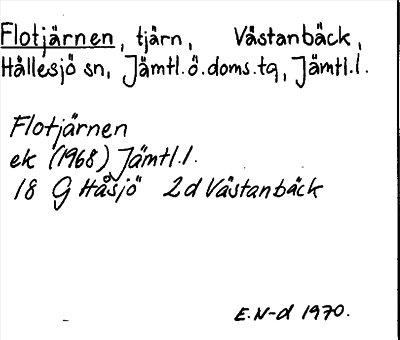 Flotjärnen, tjärn, Västanbäck,
Hällesjö sn, Jämtl.ö.doms.tg, Jämtl.l.
Flotjärnen
ek (1968) Jämtl.l.
18 G Håsjö 2d Västanbäck
E.N-d 1970.